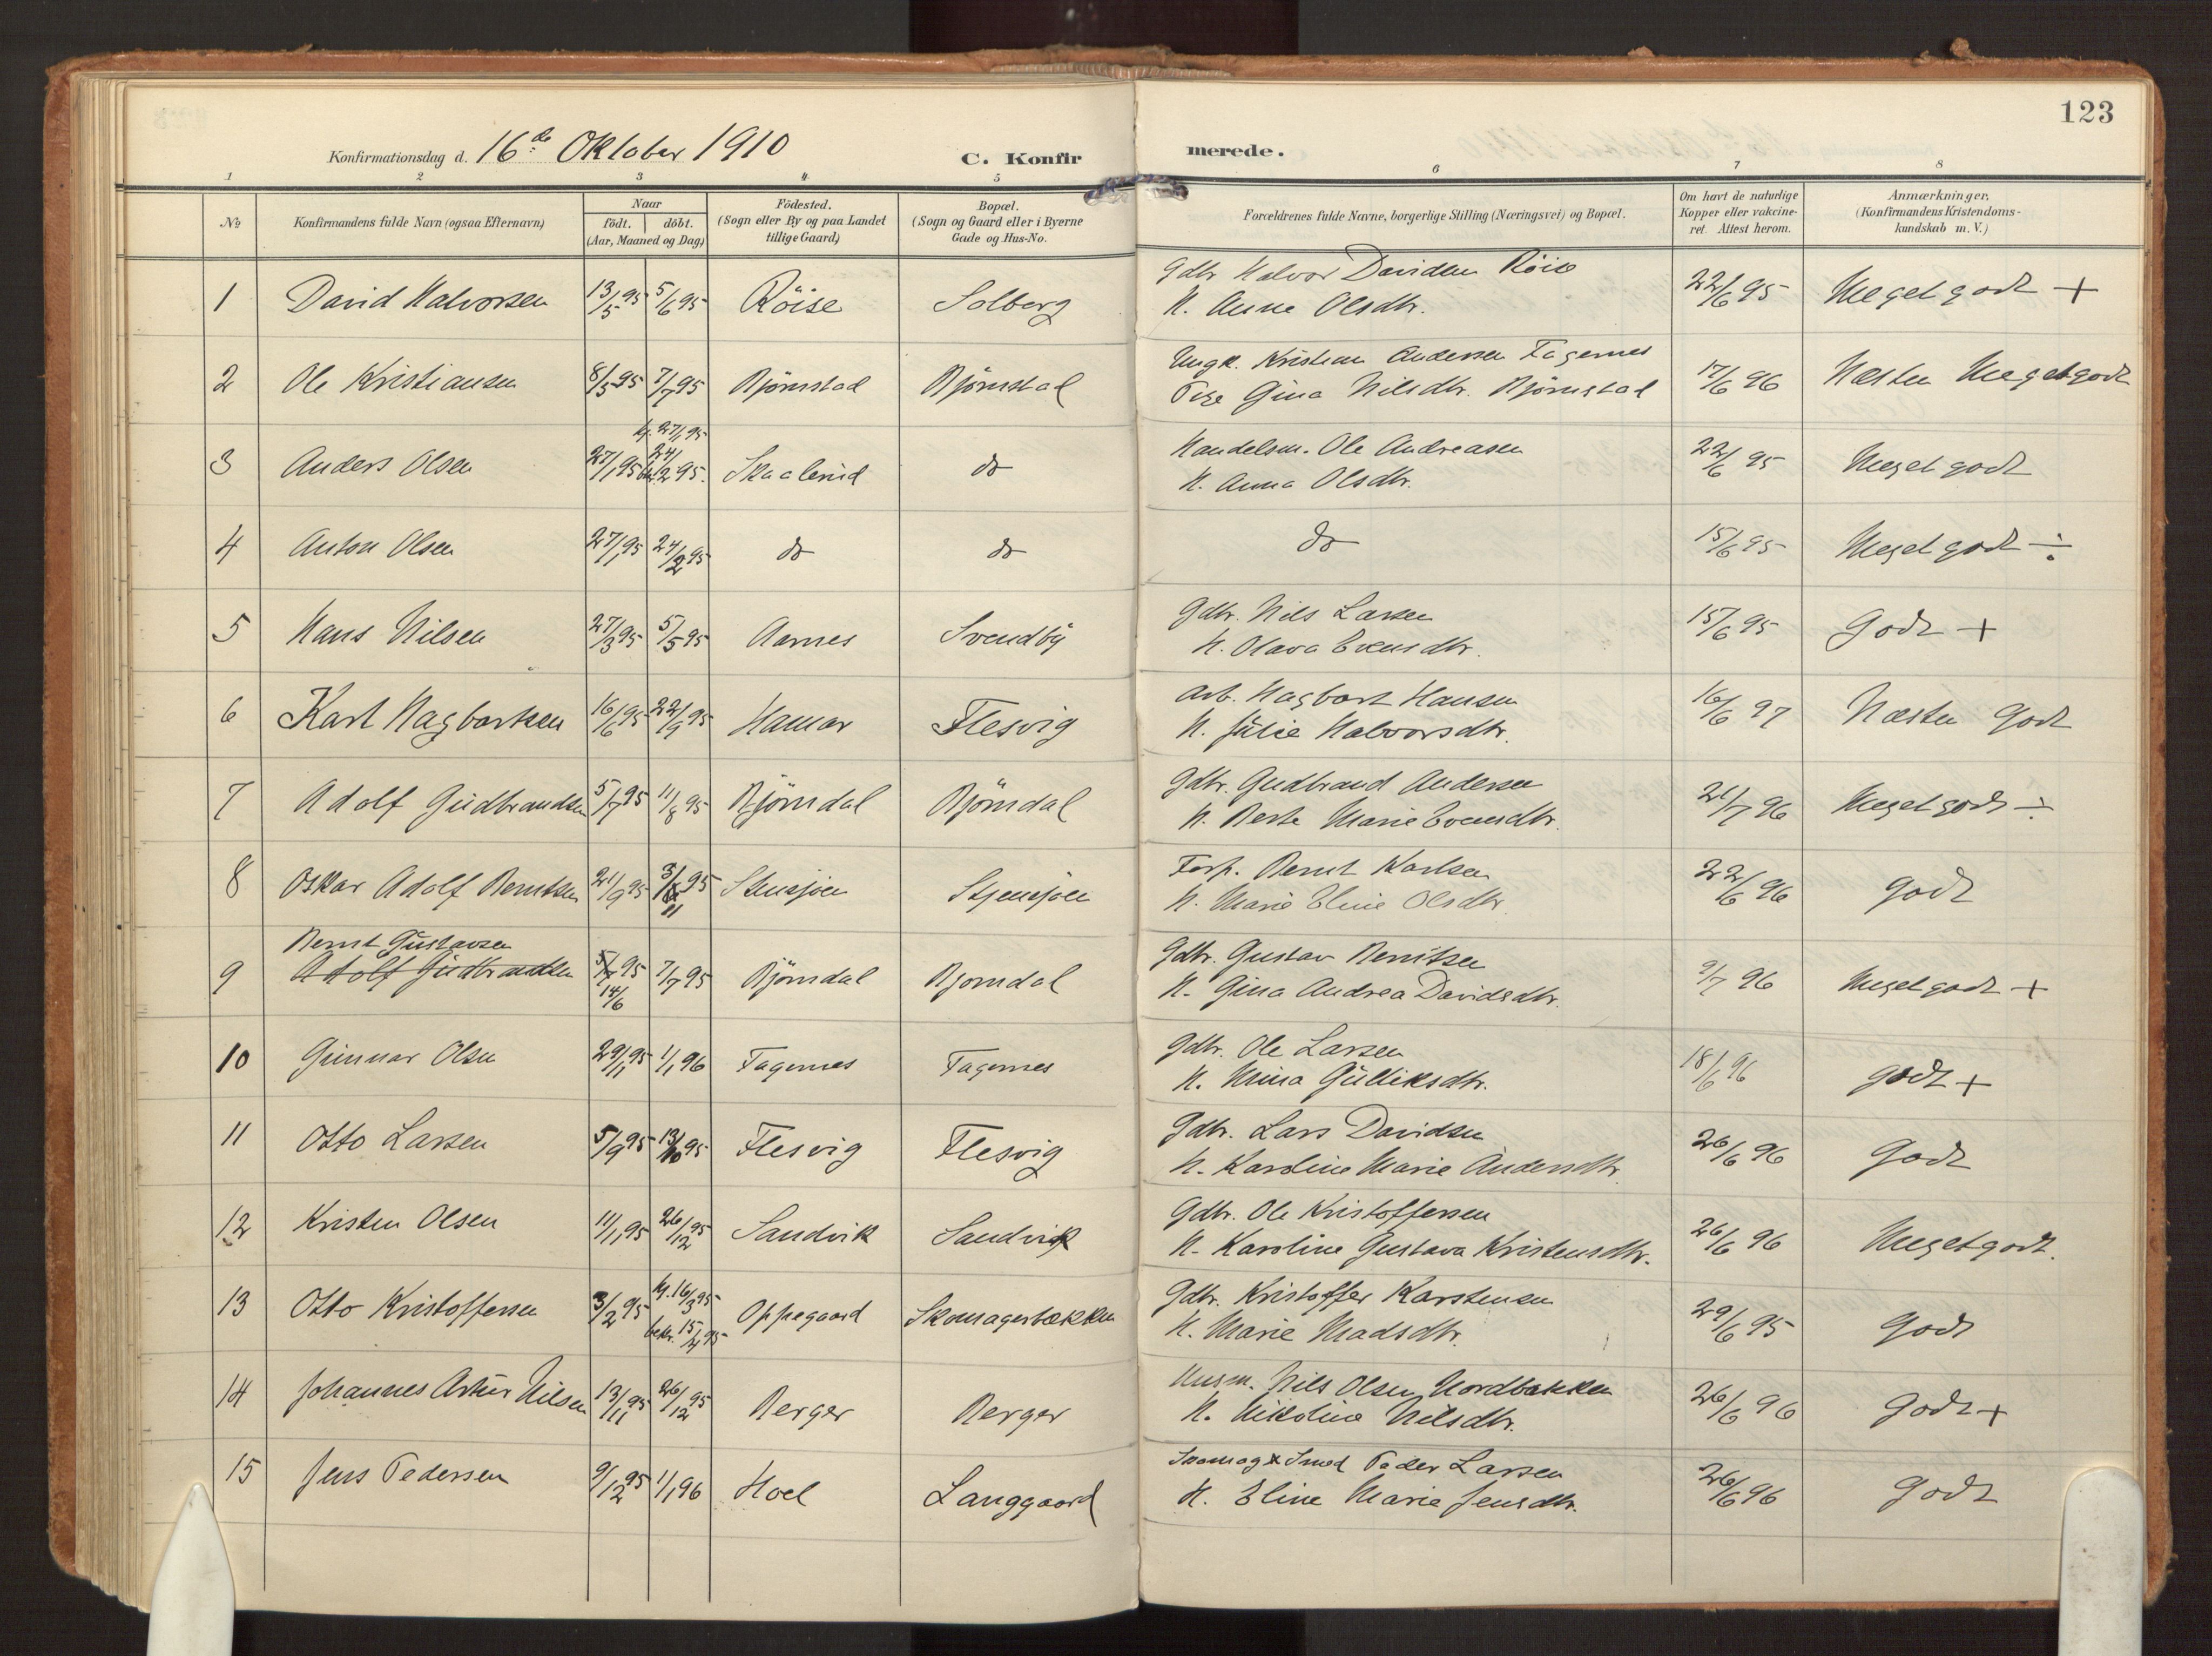 123
Konfirmationsdag d. 16de Oktober 1910 C. Konfirmerede.
1 2 3 4 5 6 7 8
No
Konfirmandens fulde Navn (ogsaa Efternavn)
Naar
födt. döbt.
(Aar, Maaned og Dag)
Födested.
(Sogn eller By og paa Landet
tillige Gaard)
Bopæl.
(Sogn og Gaard eller i Byerne
Gade og Hus-No.
Forældrenes fulde Navne, borgerlige Stilling (Næringsvei) og Bopæl.
Om havt de naturlige
Kopper eller vakcine-
ret. Attest herom.
Anmærkninger,
(Konfirmandens Kristendoms-
kundskab m. V.)
1 David Halvorsen 13/5 95 5/6 95 Röise Solberg Gdbr. Halvor Davidsen Röise 22/6 95 Meget godt +
H. Anne Olsdtr.
2 Ole Kristiansen 8/5 95 7/7 95 Björnstad Björnstad Ungk. Kristian Andersen Fagernes 17/6 96 Næsten Meget godt
Pige Gina Nilsdtr. Björnstad
3 Anders Olsen 27/1 95 hj. 27/1 95 24/2 95. Skaalerud do Handelsm. Ole Andreasen 22/6 95 Meget godt
H. Anna Olsdtr.
4 Anton Olsen 27/1 95 24/2 95 do do do 15/6 95 Meget godt ÷
5 Hans Nilsen 27/3 95 5/5 95 Aarnes Svendby Gdbr. Nils Larsen 15/6 95 Godt +
H. Olava Evensdtr.
6 Karl Hagbartsen 16/6 95 22/9 95 Hamar Flesvig Arb. Hagbart Hansen 16/6 97 Næsten Godt
H. Julie Halvorsdtr.
7 Adolf Gudbrandsen 5/7 95 11/8 95 Björndal Björndal Gdbr. Gudbrand Andersen 21/7 96 Meget godt ÷
H. Berte Marie Evensdtr.
8 Oskar Adolf Berntsen 21/9 95 3/11 95 Stensjöen Stjensjöen Forp. Bernt Karlsen 22/6 96 godt
H. Marie Eline Olsdtr.
Bernt Gustavsen
9 Adolf Gudbrandsen 5/7 95 14/6 7/7 95 Björndal Bjorndal Gdbr. Gustav Berntsen 9/7 96 Meget godt +
H. Gina Andrea Davidsdtr.
10 Gunnar Olsen 29/11 95 1/1 96 Fagernes Fagernes Gdbr. Ole Larsen 18/6 96 godt +
H. Mina Gulliksdtr.
11 Otto Larsen 5/9 95 13/10 95 Flesvig Flesvig Gdbr. Lars Davidsen 26/6 96 Godt
H. Karoline Marie Andersdtr.
12 Kristen Olsen 11/11 95 26/12 95 Sandvik Sandvik Gdbr. Ole Kristoffersen 26/6 96 Meget godt.
H. Karoline Gustava Kristensdtr.
13 Otto Kristoffersen 3/2 95 hj. 16/3 95 bekr. 15/4 95 Oppegaard Skomagerbækken Gdbr. Kristoffer Karstensen 29/6 95 Godt
H. Marie Madsdtr.
14 Johannes Artur Nilsen 13/11 95 26/12 95 Berger Berger Husm. Nils Olsen Nordbækken 26/6 96 Godt +
H. Nikoline Nilsdtr.
15 Jens Pedersen 9/12 95 1/1 96 Hoel Langgaard Skomag & Smed Peder Larsen 26/6 96 Godt
H. Eline Marie Jensdtr.